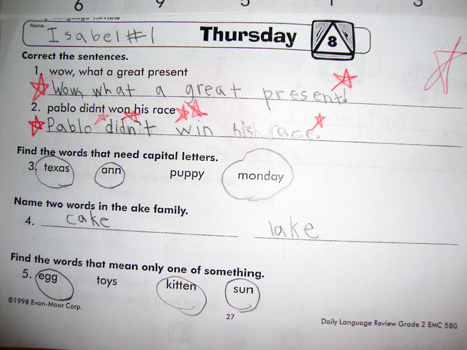 6 9 5 1 3
Name: Isabel #1 Thursday 8
Correct the sentences.
1. wow, what a great present
Wow, what a great present!
2. pablo didnt won his race
Pablo didn't win his race.
Find the words that need capital letters.
3. texas ann puppy monday
Name two words in the ake family.
4. cake lake
Find the words that mean only one of something.
5. egg toys kitten sun
©1998 Evan-Moor Corp. 27 Daily Language Review Grade 2 EMC 580